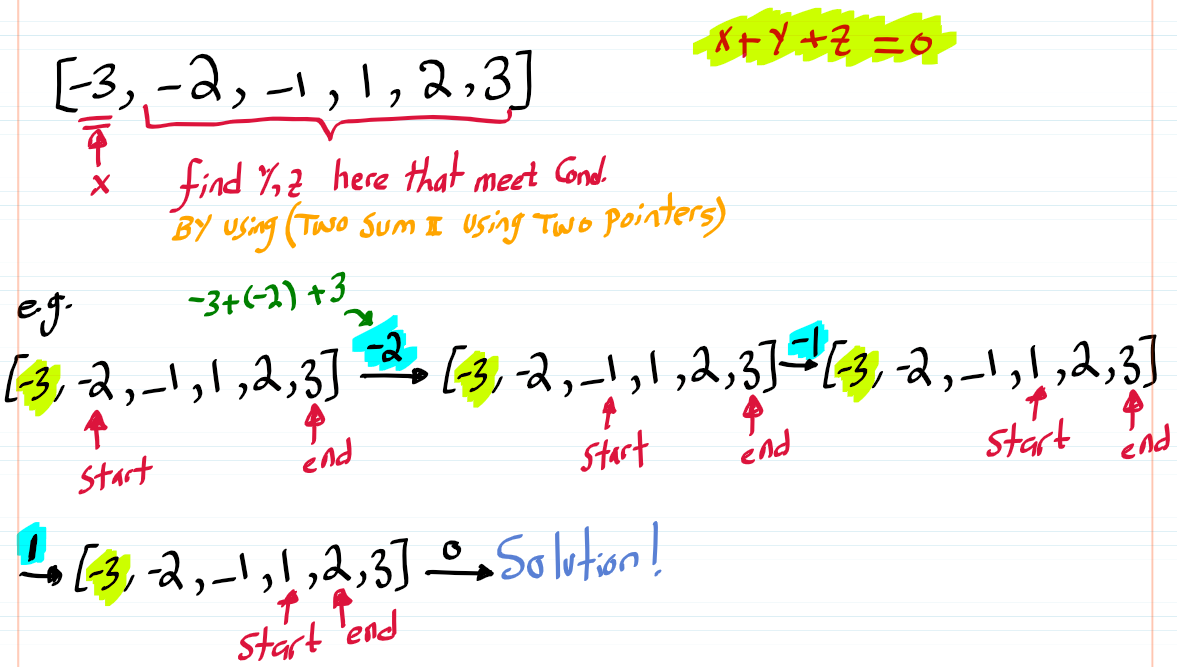 x+y+z=0
[-3, -2, -1, 1, 2, 3]
x
find y,z here that meet Cond.
BY using (Two Sum II using Two pointers)
e.g. -3+(-2)+3
[-3, -2, -1, 1, 2, 3] -2 → [-3, -2, -1, 1, 2, 3] -1 → [-3, -2, -1, 1, 2, 3]
start end start end start end
1 → [-3, -2, -1, 1, 2, 3] 0 → Solution!
start end